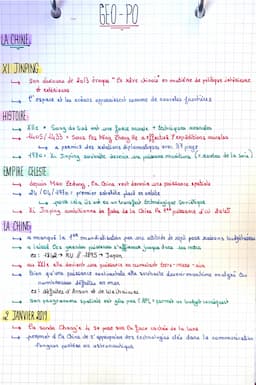 GEO-PO
LA CHINE
XI JINPING
Son discours de 2013 évoque "Le rêve chinois" en matière de politique intérieure
& extérieure
L'espace et les océans apparaissent comme de nouvelles frontières
HISTOIRE
XIIe = Song du Sud ont une force navale + techniques avancées
1405/1433 = Sous les Ming Zheng He a effectué 7 expéditions navales
a permis des relations diplomatiques avec 37 pays
Xi Jinping souhaite devenir une puissance maritime
EMPIRE CÉLESTE
depuis Mao Zedong, la Chine veut devenir une puissance spatiale
24/04/1970 = premier satellite placé en orbite
pour cela ils ont eu un transfert technologique soviétique
Xi Jinping ambitionne de faire de la Chine la 1ère puissance d'ici
LA CHINE
a manqué la 1ère mondialisation par une attitude de repli pour raisons budgétaires
a laissé les grandes puissances s'affirmer jusque dans ses mers
ex : RU // 1895 → Japon
au XXIe elle devient une puissance en cumulant terre-mer-air
Bien qu'une puissance continentale elle souhaite devenir maritime malgré de
nombreuses défaites en mer
ex : défaites d'Ansan et de Weihaiwei
son programme spatial est géré par l'APL
2 JANVIER 2019
la sonde Chang'e 4 se pose sur la face cachée de la lune
permet à la Chine de s'approprier des technologies clés dans la communication
longue portée en astronautique